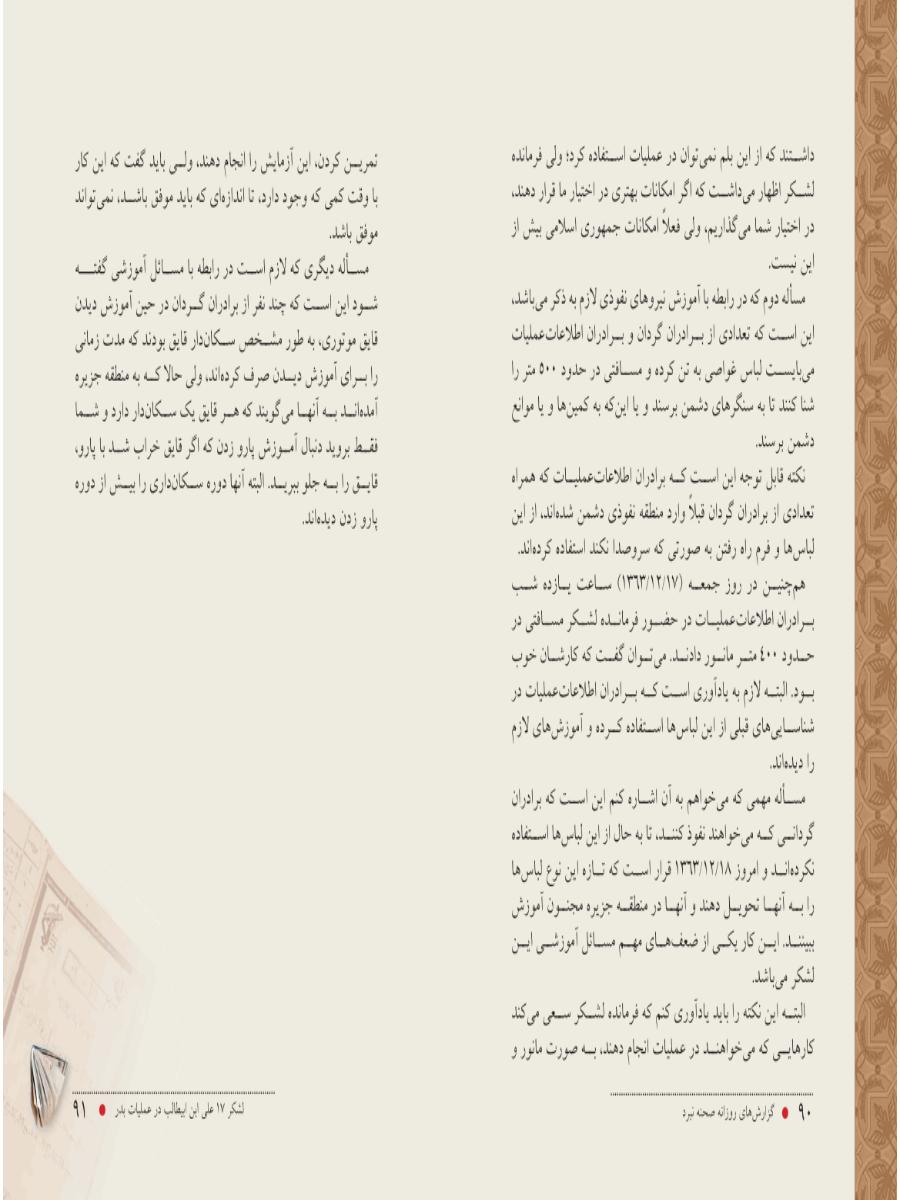 داشتند که از این بلم نمی‌توان در عملیات استفاده کرد؛ ولی فرمانده
لشکر اظهار می‌داشت که اگر امکانات بهتری در اختیار ما قرار دهند،
در اختیار شما می‌گذاریم، ولی فعلاً امکانات جمهوری اسلامی بیش از
این نیست.
مسأله دوم که در رابطه با آموزش نیروهای نفوذی لازم به ذکر می‌باشد،
این است که تعدادی از برادران گردان و برادران اطلاعات‌عملیات
می‌بایست لباس غواصی به تن کرده و مسافتی در حدود ۵۰۰ متر را
شنا کنند تا به سنگرهای دشمن برسند و یا این‌که به کمین‌ها و یا موانع
دشمن برسند.
نکته قابل توجه این است که برادران اطلاعات‌عملیات که همراه
تعدادی از برادران گردان قبلاً وارد منطقه نفوذی دشمن شده‌اند، از این
لباس‌ها و فرم راه رفتن به صورتی که سروصدا نکند استفاده کرده‌اند.
هم‌چنین در روز جمعه (۱۳۶۳/۱۲/۱۷) ساعت یازده شب
برادران اطلاعات‌عملیات در حضور فرمانده لشکر مسافتی در
حدود ۴۰۰ متر مانور دادند. می‌توان گفت که کارشان خوب
بود. البته لازم به یادآوری است که برادران اطلاعات‌عملیات در
شناسایی‌های قبلی از این لباس‌ها استفاده کرده و آموزش‌های لازم
را دیده‌اند.
مسأله مهمی که می‌خواهم به آن اشاره کنم این است که برادران
گردانی که می‌خواهند نفوذ کنند، تا به حال از این لباس‌ها استفاده
نکرده‌اند و امروز ۱۳۶۳/۱۲/۱۸ قرار است که تازه این نوع لباس‌ها
را به آنها تحویل دهند و آنها در منطقه جزیره مجنون آموزش
ببینند. این کار یکی از ضعف‌های مهم مسائل آموزشی این
لشکر می‌باشد.
البته این نکته را باید یادآوری کنم که فرمانده لشکر سعی می‌کند
کارهایی که می‌خواهند در عملیات انجام دهند، به صورت مانور و
۹۰ ● گزارش‌های روزانه صحنه نبرد
تمرین کردن، این آزمایش را انجام دهند، ولی باید گفت که این کار
با وقت کمی که وجود دارد، تا اندازه‌ای که باید موفق باشد، نمی‌تواند
موفق باشد.
مسأله دیگری که لازم است در رابطه با مسائل آموزشی گفته
شود این است که چند نفر از برادران گردان در حین آموزش دیدن
قایق موتوری، به طور مشخص سکان‌دار قایق بودند که مدت زمانی
را برای آموزش دیدن صرف کرده‌اند، ولی حالا که به منطقه جزیره
آمده‌اند به آنها می‌گویند که هر قایق یک سکان‌دار دارد و شما
فقط بروید دنبال آموزش پارو زدن که اگر قایق خراب شد با پارو،
قایق را به جلو ببرید. البته آنها دوره سکان‌داری را بیش از دوره
پارو زدن دیده‌اند.
لشکر ۱۷ علی ابن ابیطالب در عملیات بدر ● ۹۱